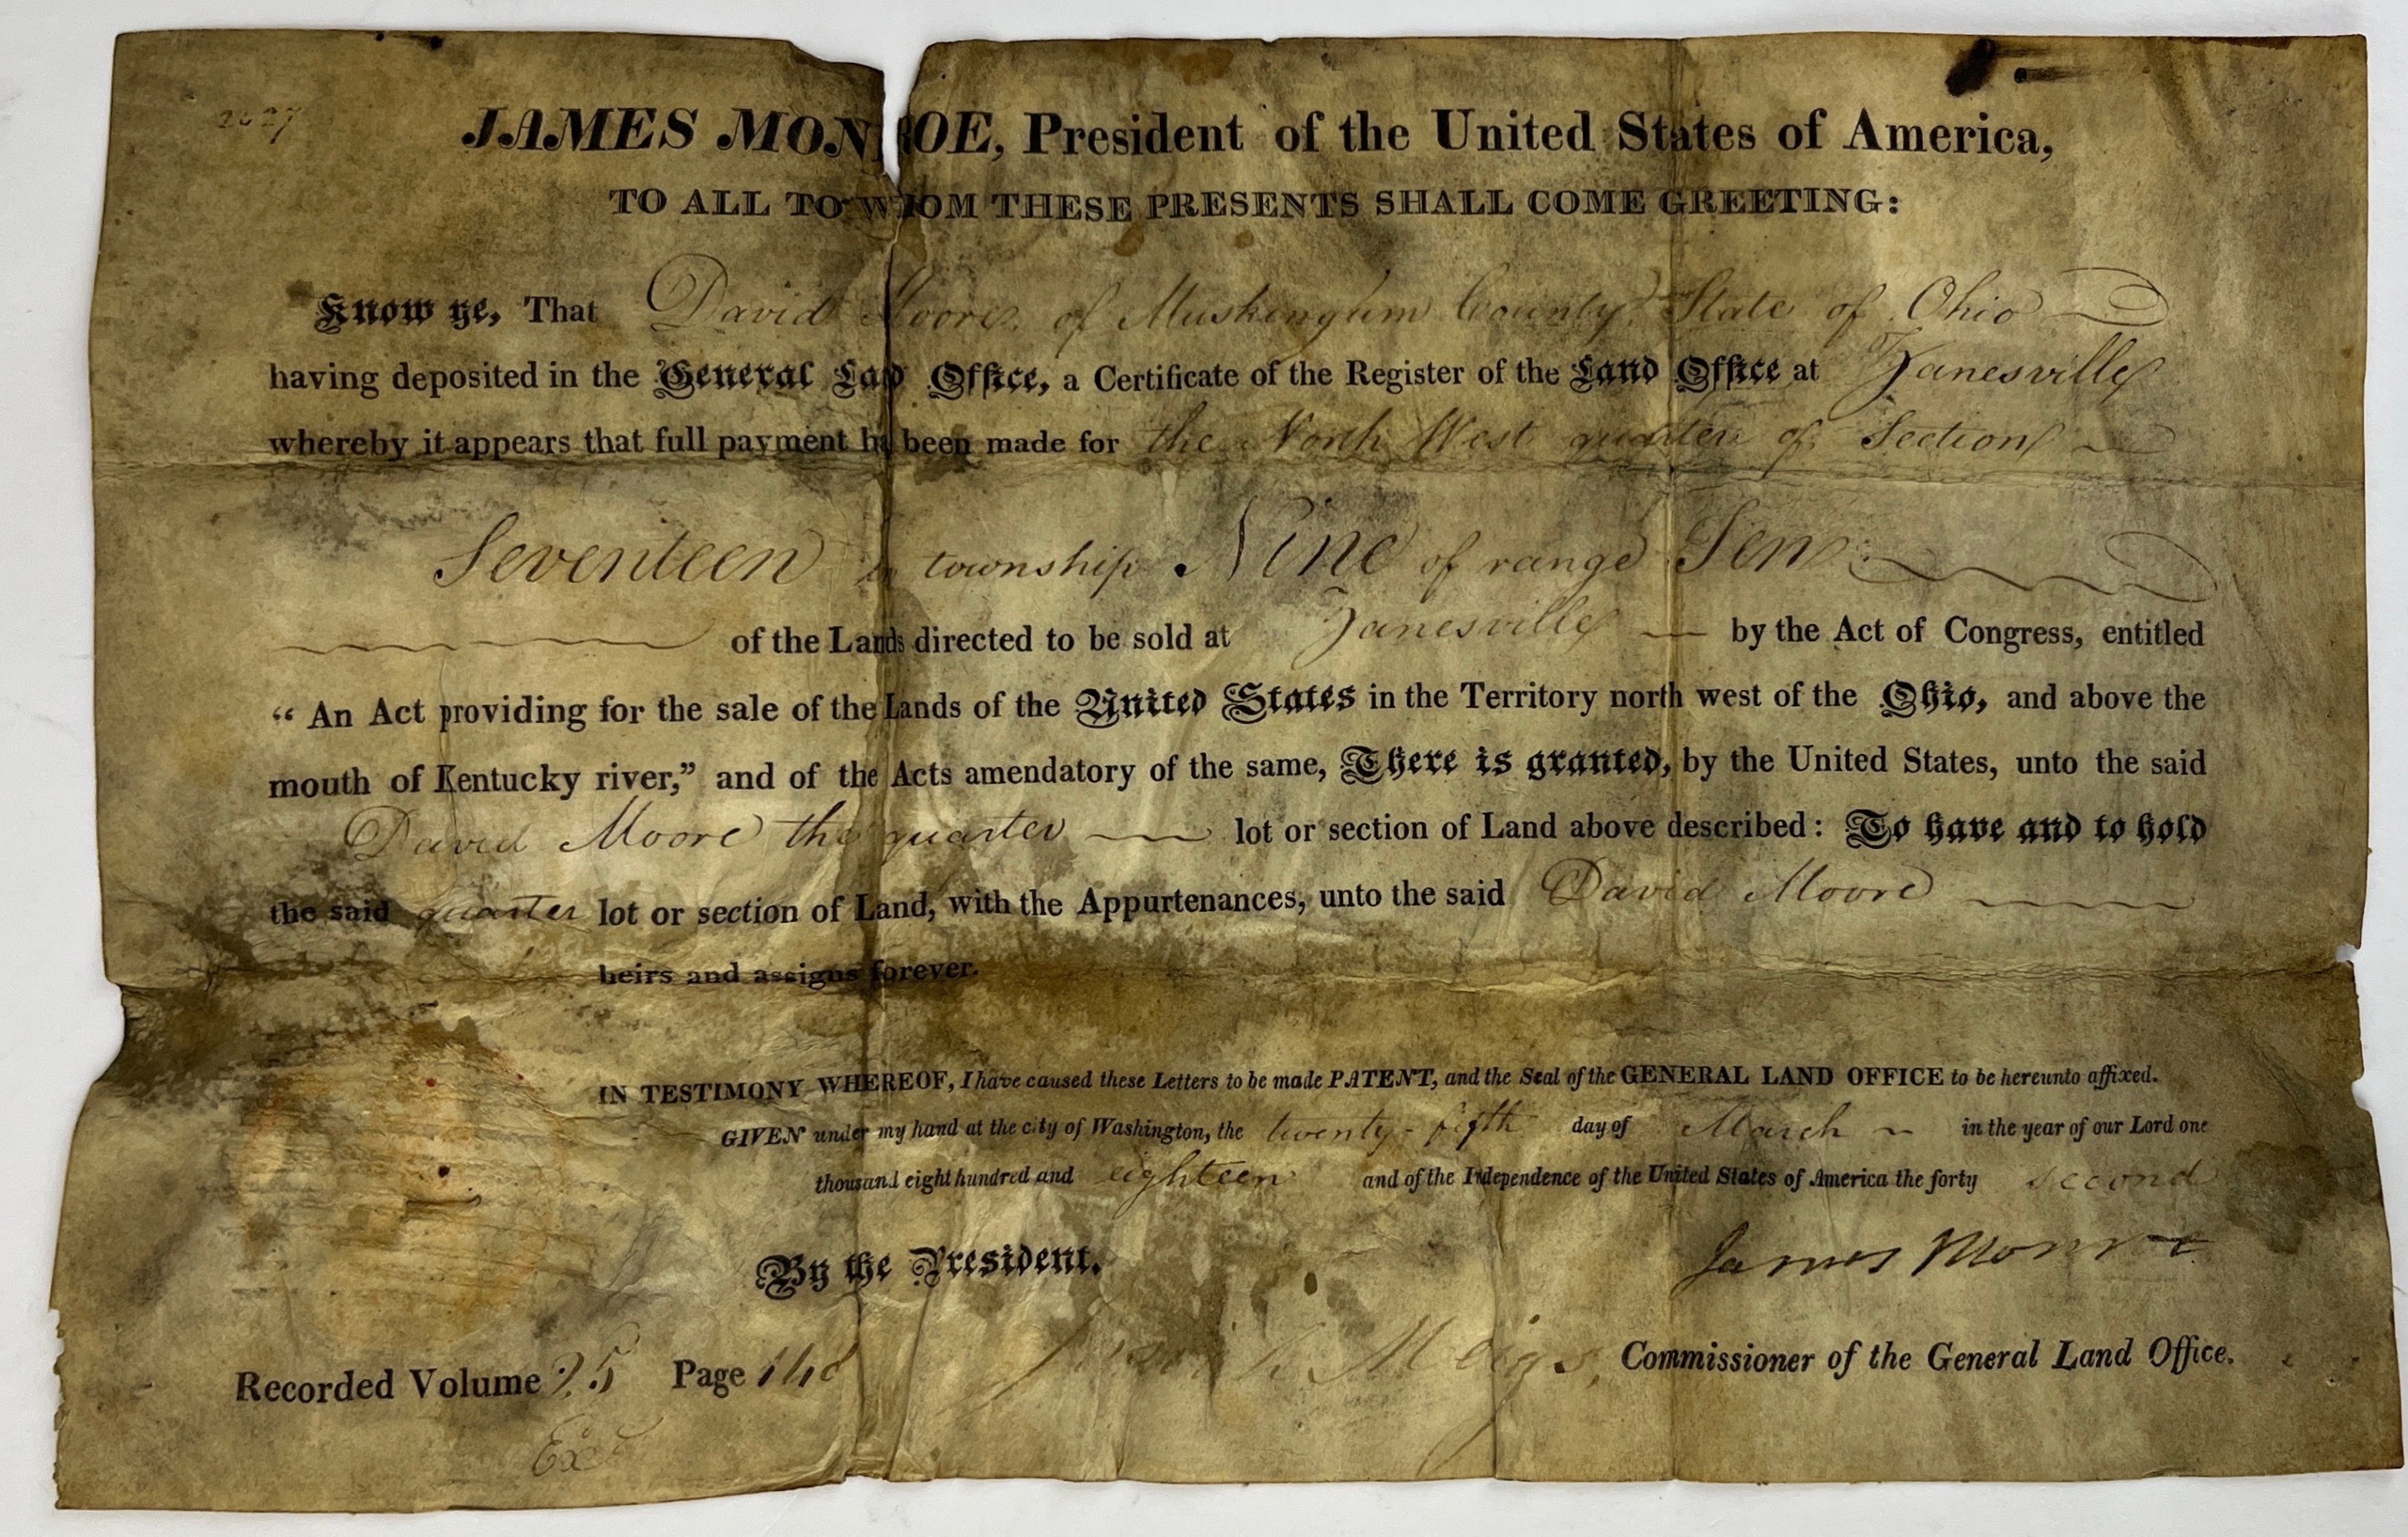 JAMES MONROE, President of the United States of America,
TO ALL TO WHOM THESE PRESENTS SHALL COME GREETING:
Know ye, That David Moore of Muskingum County, State of Ohio
having deposited in the General Land Office, a Certificate of the Register of the Land Office at Zanesville
whereby it appears that full payment has been made for the North West quarter of Section
Seventeen in township Nine of range Ten
of the Lands directed to be sold at Zanesville by the Act of Congress, entitled
“An Act providing for the sale of the Lands of the United States in the Territory north west of the Ohio, and above the
mouth of Kentucky river,” and of the Acts amendatory of the same, There is granted, by the United States, unto the said
David Moore the quarter lot or section of Land above described: To have and to hold
the said quarter lot or section of Land, with the Appurtenances, unto the said David Moore
heirs and assigns forever.
IN TESTIMONY WHEREOF, I have caused these Letters to be made PATENT, and the Seal of the GENERAL LAND OFFICE to be hereunto affixed.
GIVEN under my hand at the city of Washington, the twenty-fifth day of March in the year of our Lord one
thousand eight hundred and eighteen and of the Independence of the United States of America the forty second
James Monroe
By the President.
Josiah Meigs, Commissioner of the General Land Office.
Recorded Volume 25 Page
Exd